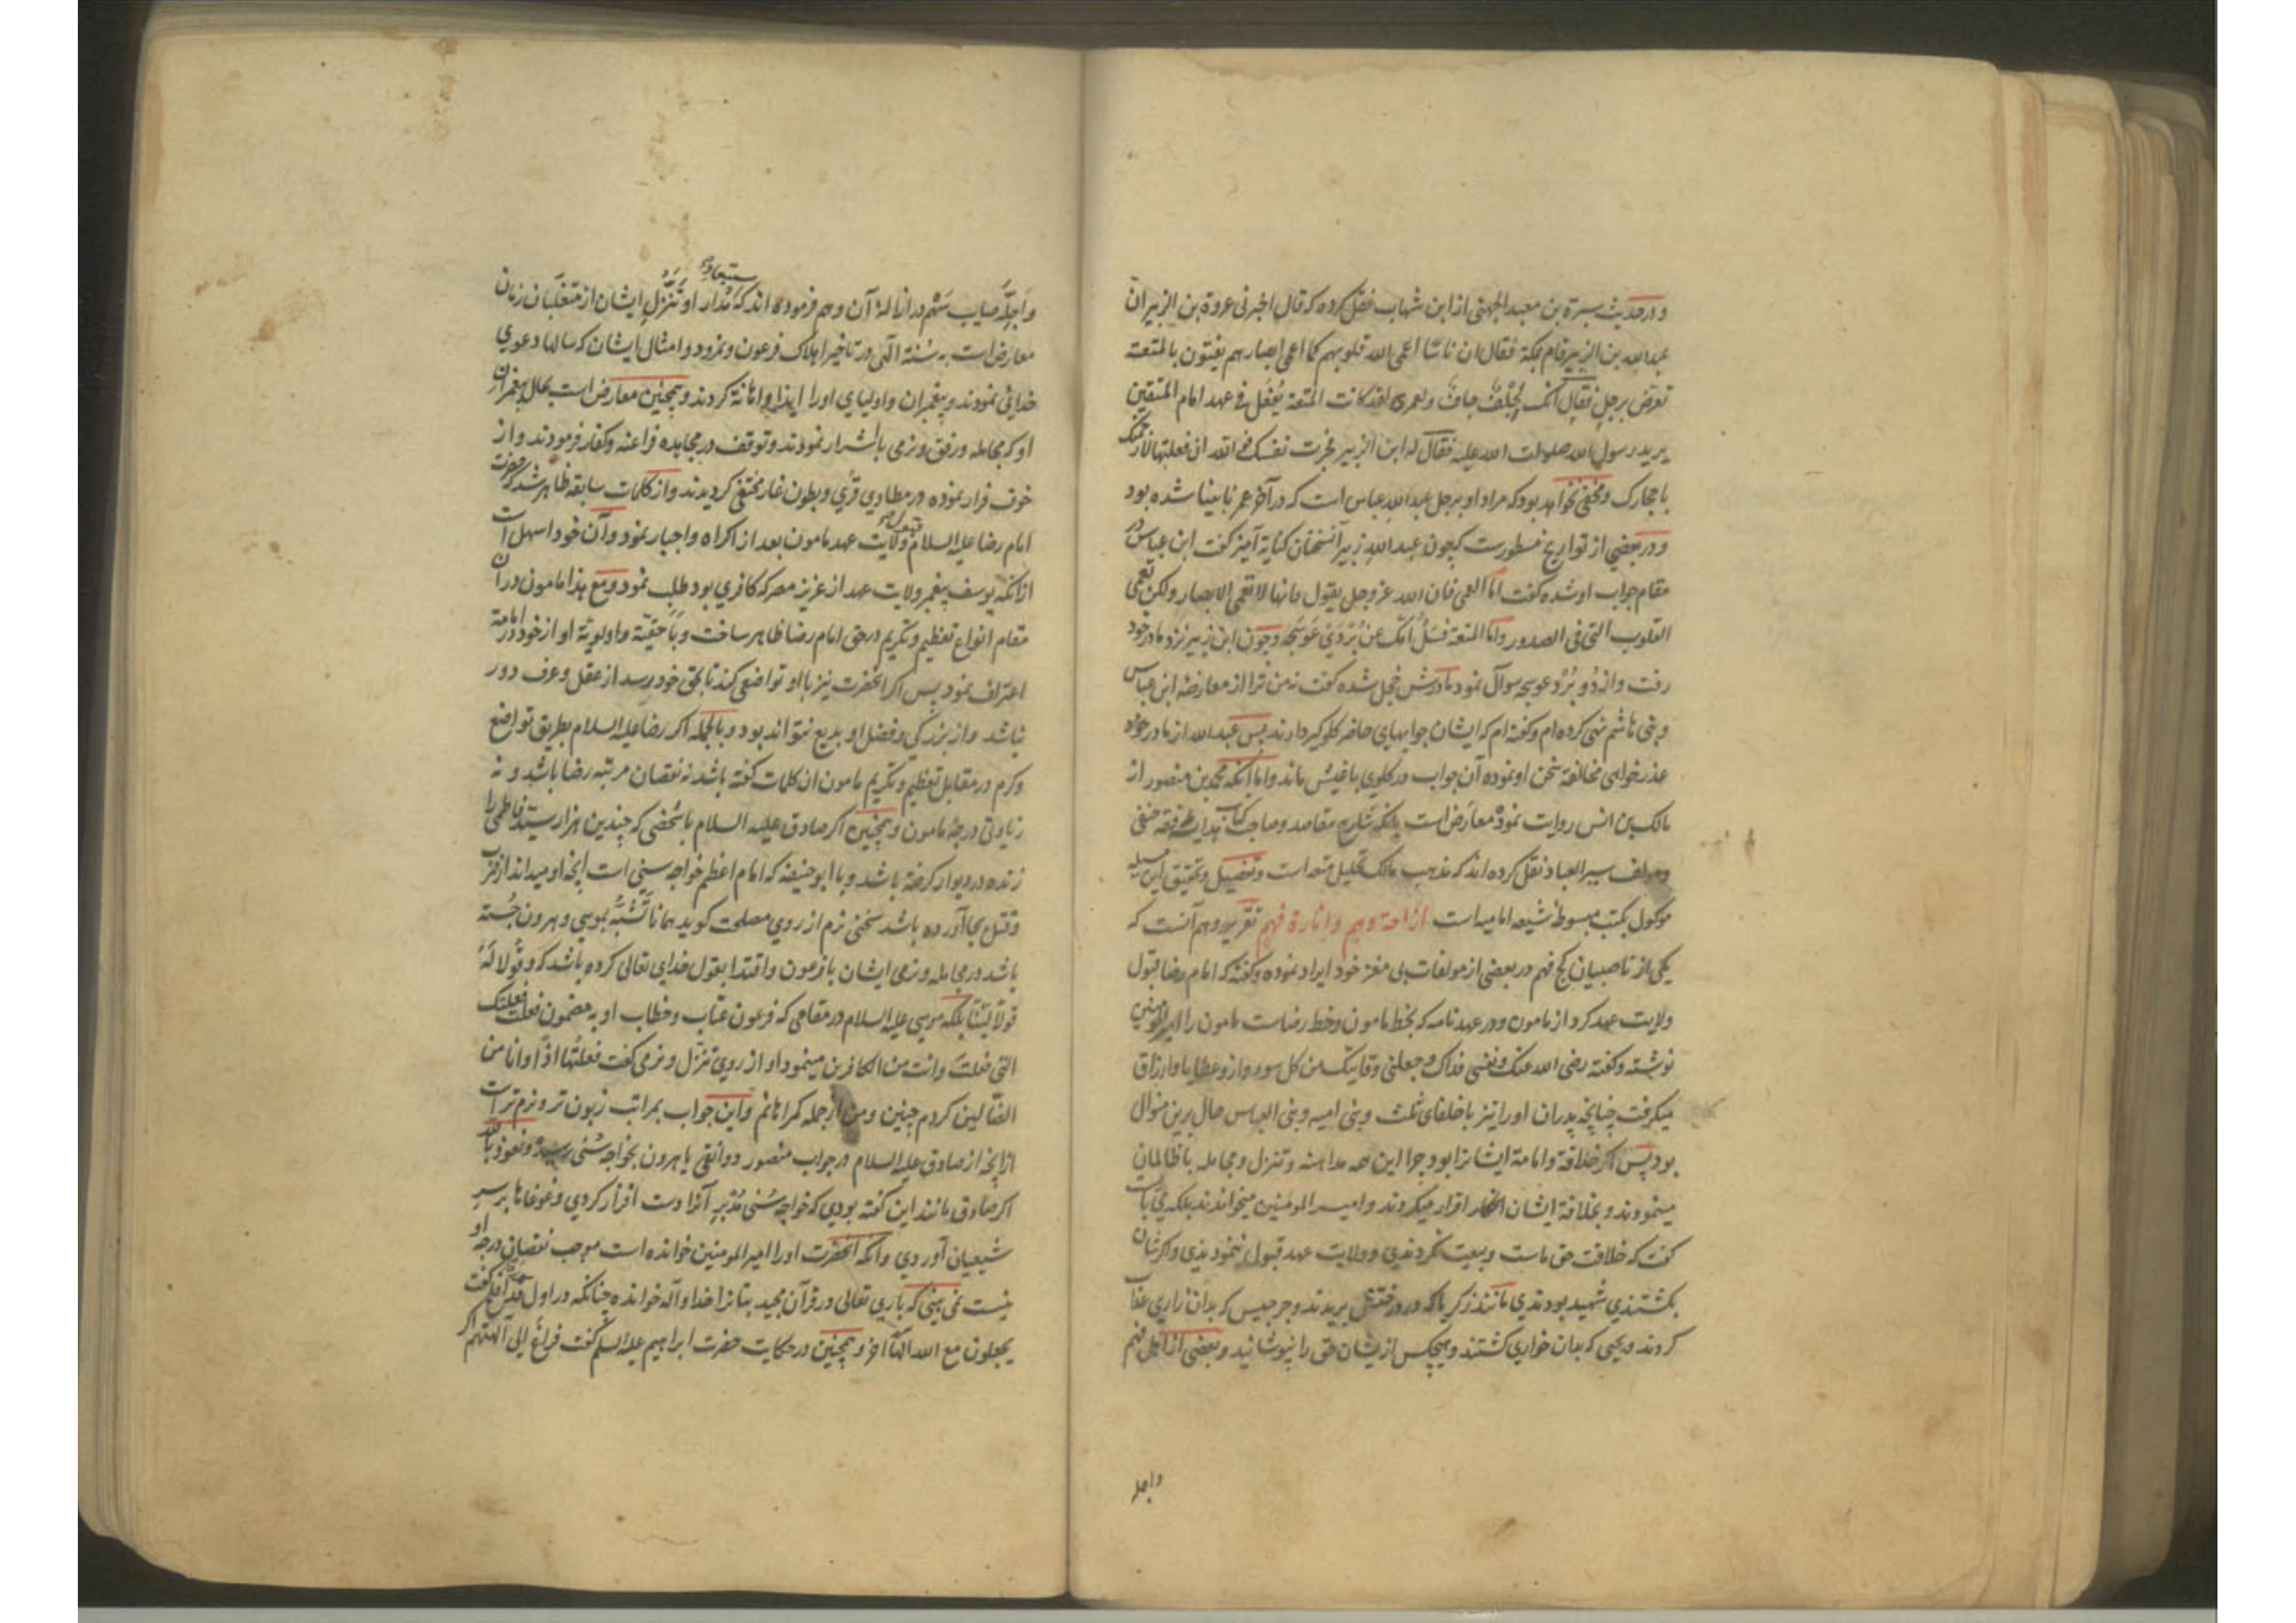 و در حدیث سبرة بن معبد الجهنی از ابن شهاب نقل کرده که قال اخبرنی عروة بن الزبیر ان
عبدالله بن الزبیر قام بمکة فقال ان ناسا اعمی الله قلوبهم کما اعمی ابصارهم یفتون بالمتعة
تعرض برجل فقال انک لجلف جاف ولعمری لقد کانت المتعة یفعل فی عهد امام المتقین
یرید رسول الله صلوات الله علیه فقال له ابن الزبیر فجرب نفسک فوالله ان فعلتها لارجمنک
باحجارک ومخفی نخواهد بود که مراد او برجل عبدالله عباس است که در آخر عمر نابینا شده بود
و در بعضی از تواریخ مسطورست که چون عبدالله زبیر آن سخنان کنایة آمیز گفت ابن عباس در
مقام جواب او شده گفت اما العمی فان الله عز وجل یقول فانها لا تعمی الابصار ولکن تعمی
القلوب التی فی الصدور واما المتعة فسل امک عن بردی عوسجه وچون ابن زبیر نزد مادر خود
رفت واز دو برد عوسجه سوال نمود مادرش خجل شده گفت نه من ترا از معارضه ابن عباس
وبنی هاشم نهی کرده ام وگفته ام که ایشان جوابهای حاضر گلوگیر دارند پس عبدالله از مادر خود
عذر خواهی مخالفة سخن او نموده آن جواب در گلوی باغیش ماند واما آنکه محمد بن منصور از
مالک بن انس روایت نموده معارض است بانکه شارح مقاصد وصاحب کتاب هدایه فقه حنفی
ومولف سیر العباد نقل کرده اند که مذهب مالک تحلیل متعه است وتفصیل وتحقیق این مسیله
موکول بکتب مبسوطه شیعه امامیه است ازاحة وهم وانارة فهم تقریر وهم آنست که
یکی از ناصبیان کج فهم در بعضی از مولفات بی مغز خود ایراد نموده وگفته که امام رضا قبول
ولایت عهد کرد از مامون ودر عهدنامه که بخط مامون وخط رضاست مامون را امیر المومنین
نوشته وگفته رضی الله عنک ونفسی فداک وجعلنی وقایتک من کل سوء واز و عطایا وارزاق
میگرفت چنانچه پدران او را نیز با خلفای ثلث وبنی امیه وبنی العباس حال برین منوال
بود پس اگر خلافة وامامة ایشانرا بود چرا این همه مداهنه وتنزل ومجامله با ظالمان
مینمودند وبخلافة ایشان اقرار میکردند وامیر المومنین میخواندند بلکه می بایست
گفت که خلافت حق ماست وبیعت نکردندی وولایت عهد قبول ننمودندی واگرشان
بکشتندی شهید بودندی مانند زکریا که در درختش بریدند وجرجیس که بدان زاری عذاب
کردند ویحیی که بدان خواری کشتند وهیچکس ازیشان حق را نپوشانید وبعضی از اهل فهم
واجله
واجله صایب سهم در ازاله آن وهم فرموده اند که مدارا و تنزل ایشان از متغلبان زمان
معارض است به سنة الهی در تاخیر اهلاک فرعون ونمرود وامثال ایشان که سالها دعوی
خدائی نمودند وپیغمبران واولیای او را ایذا واهانة کردند وهمچنین معارض است بحال پیغمبران
او که مجامله ورفق ونرمی با اشرار نمودند وتوقف در مجاهده فراعنه وکفار فرمودند واز
خوف فرار نموده در مطاوی قری وبطون غار مختفی گردیدند واز کلمات سابقه ظاهر شد که حضرت
امام رضا علیه السلام قبول ولایت عهد مامون بعد از اکراه واجبار نمود وآن خود اسهل است
ازانکه یوسف پیغمبر ولایت عهد از عزیز مصر که کافری بود طلب نمود ومع هذا مامون در آن
مقام انواع تعظیم وتکریم در حق امام رضا ظاهر ساخت وباحقیة واولویة او از خود در امامة
اعتراف نمود پس اگر آنحضرت نیز با او تواضعی کند تا بحق خود رسد از عقل وعرف دور
نباشد واز بزرگی وفضل او بدیع نتواند بود وبالجمله اگر رضا علیه السلام بطریق تواضع
وکرم در مقابل تعظیم وتکریم مامون ان کلمات گفته باشد نه نقصان مرتبه رضا باشد ونه
زیادتی درجه مامون وهمچنین اگر صادق علیه السلام با شخصی که چندین هزار سید فاطمی را
زنده در دیوار گرفته باشد وبا ابو حنیفه که امام اعظم خواجه سنی است آنچه او میداند از ضرب
وقتل بجا آورده باشد سخنی نرم از روی مصلحت گوید همانا تشبه بموسی وهرون جسته
باشد در مجامله ونرمی ایشان با فرعون واقتدا بقول خدای تعالی کرده باشد که وقولا له
قولا لینا بلکه موسی علیه السلام در مقامی که فرعون عتاب وخطاب او به مضمون فعلت فعلتک
التی فعلت وانت من الکافرین مینمود او از روی تنزل ونرمی گفت فعلتها اذا وانا من
الضالین کردم چنین ومن از جمله گمراهانم واین جواب بمراتب زبون تر ونرم تر است
ازانچه از صادق علیه السلام در جواب منصور دوانقی یا هرون بخواجه سنی رسیده ونعوذ بالله
اگر صادق مانند این گفته بودی که خواجه سنی مدبر آنرا دست افزار کردی وغوغاها بر سر
شیعیان آوردی وانکه آنحضرت او را امیر المومنین خوانده است موجب نقصان درجه او
نیست نمی بینی که باری تعالی در قرآن مجید بتانرا خدا وآله خوانده چنانکه در اول گفت
یجعلون مع الله الها آخر وهمچنین در حکایت حضرت ابراهیم علیه السلم گفت فراغ الی آلهتهم